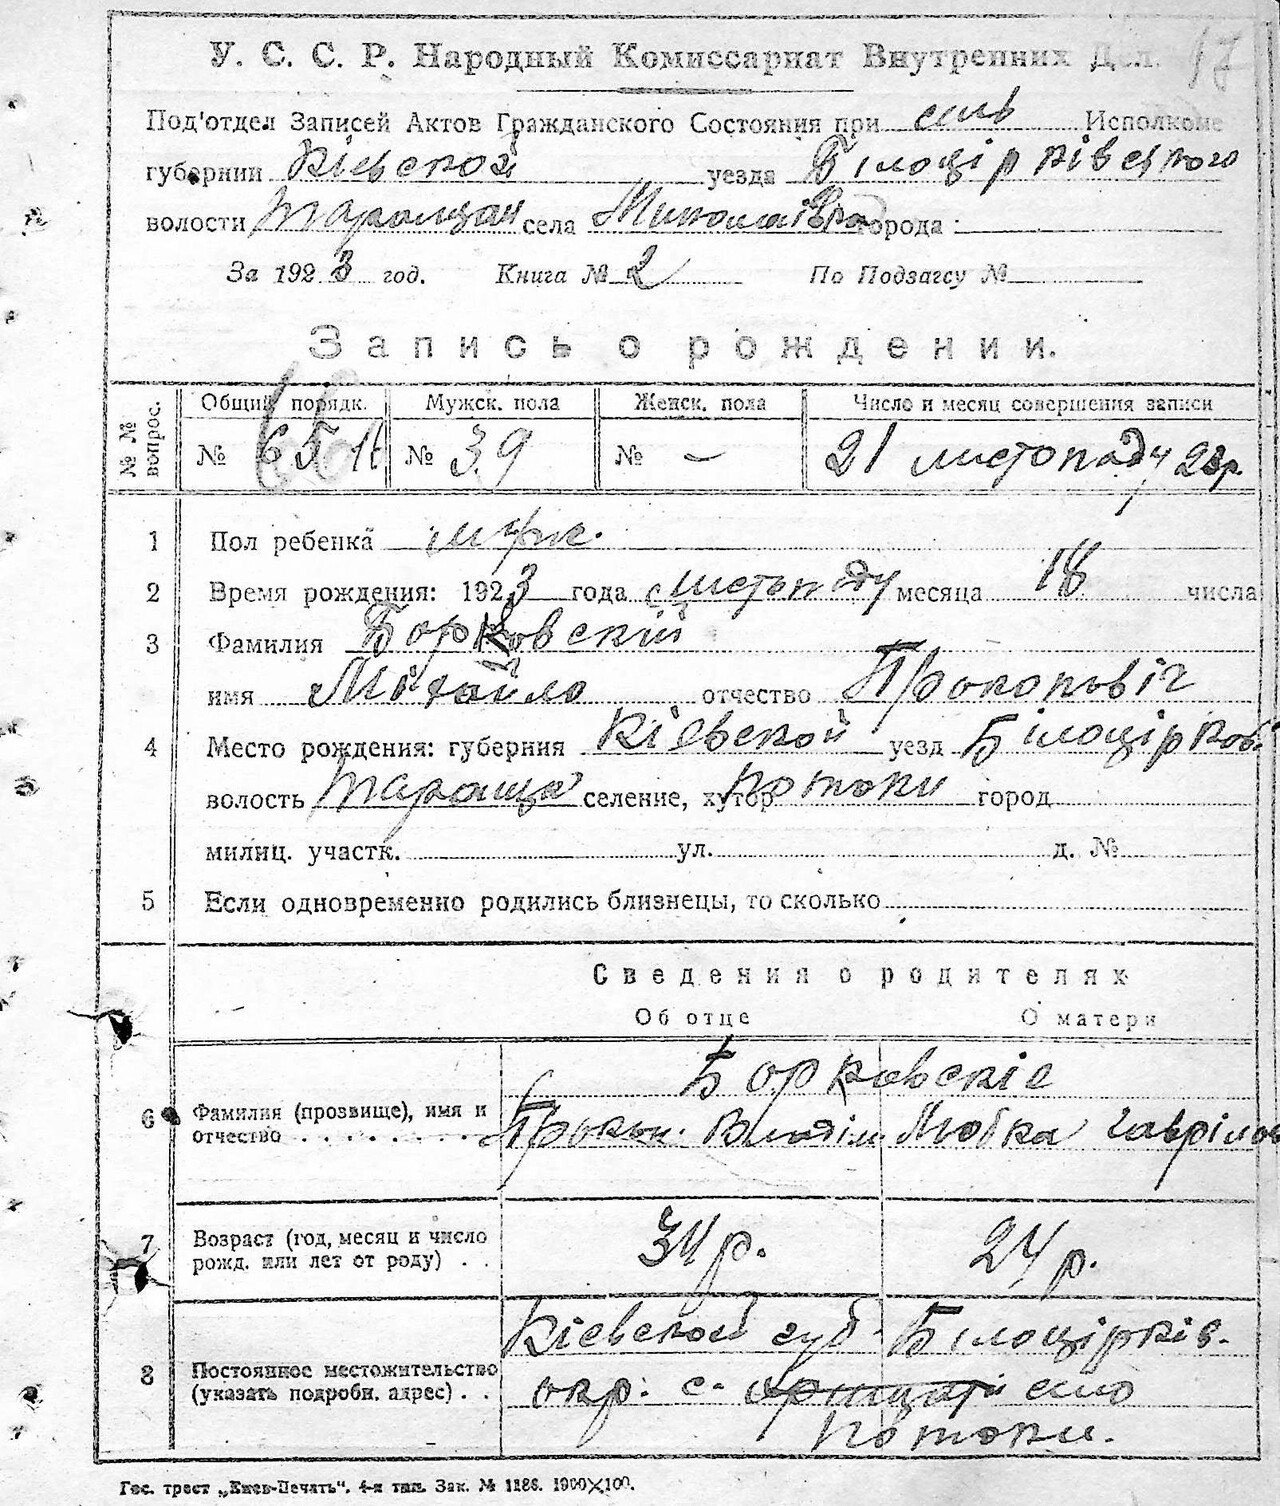 У. С. С. Р. Народный Комиссариат Внутренних Дел. 17
Под'отдел Записей Актов Гражданского Состояния при сель Исполкоме
губернии Кіевской уезда Білоцірківського
волости Таращан села Миколаівка города
За 1923 год. Книга № 2 По Подзагсу №
Запись о рождении.
№ № вопрос. Общий порядк. Мужск. пола Женск. пола Число и месяц совершения записи
№ 65 № 39 № – 21 листопаду 23р.
1 Пол ребенка муж.
2 Время рождения: 1923 года листопаду месяца 18 числа
3 Фамилия Борковский
имя Міхайло отчество Прокоповіч
4 Место рождения: губерния Кіевской уезд Білоцірков.
волость Тараща селение, хутор Потоки город
милиц. участк. ул. д. №
5 Если одновременно родились близнецы, то сколько
Сведения о родителях
Об отце О матери
Борковскіе
6 Фамилия (прозвище), имя и отчество Прокоп. Любка Гаврілов
7 Возраст (год, месяц и число рожд. или лет от роду) 34 р. 24 р.
Кіевской губ. Білоцірків.
8 Постоянное местожительство (указать подробн. адрес) окр. с. село
Потоки.
Гос. трест „Киев-Печать“. 4-я тип. Зак. № 1186. 1900×100.